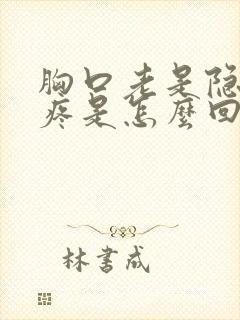 胸口老是隐
疼是怎麼回
林書成